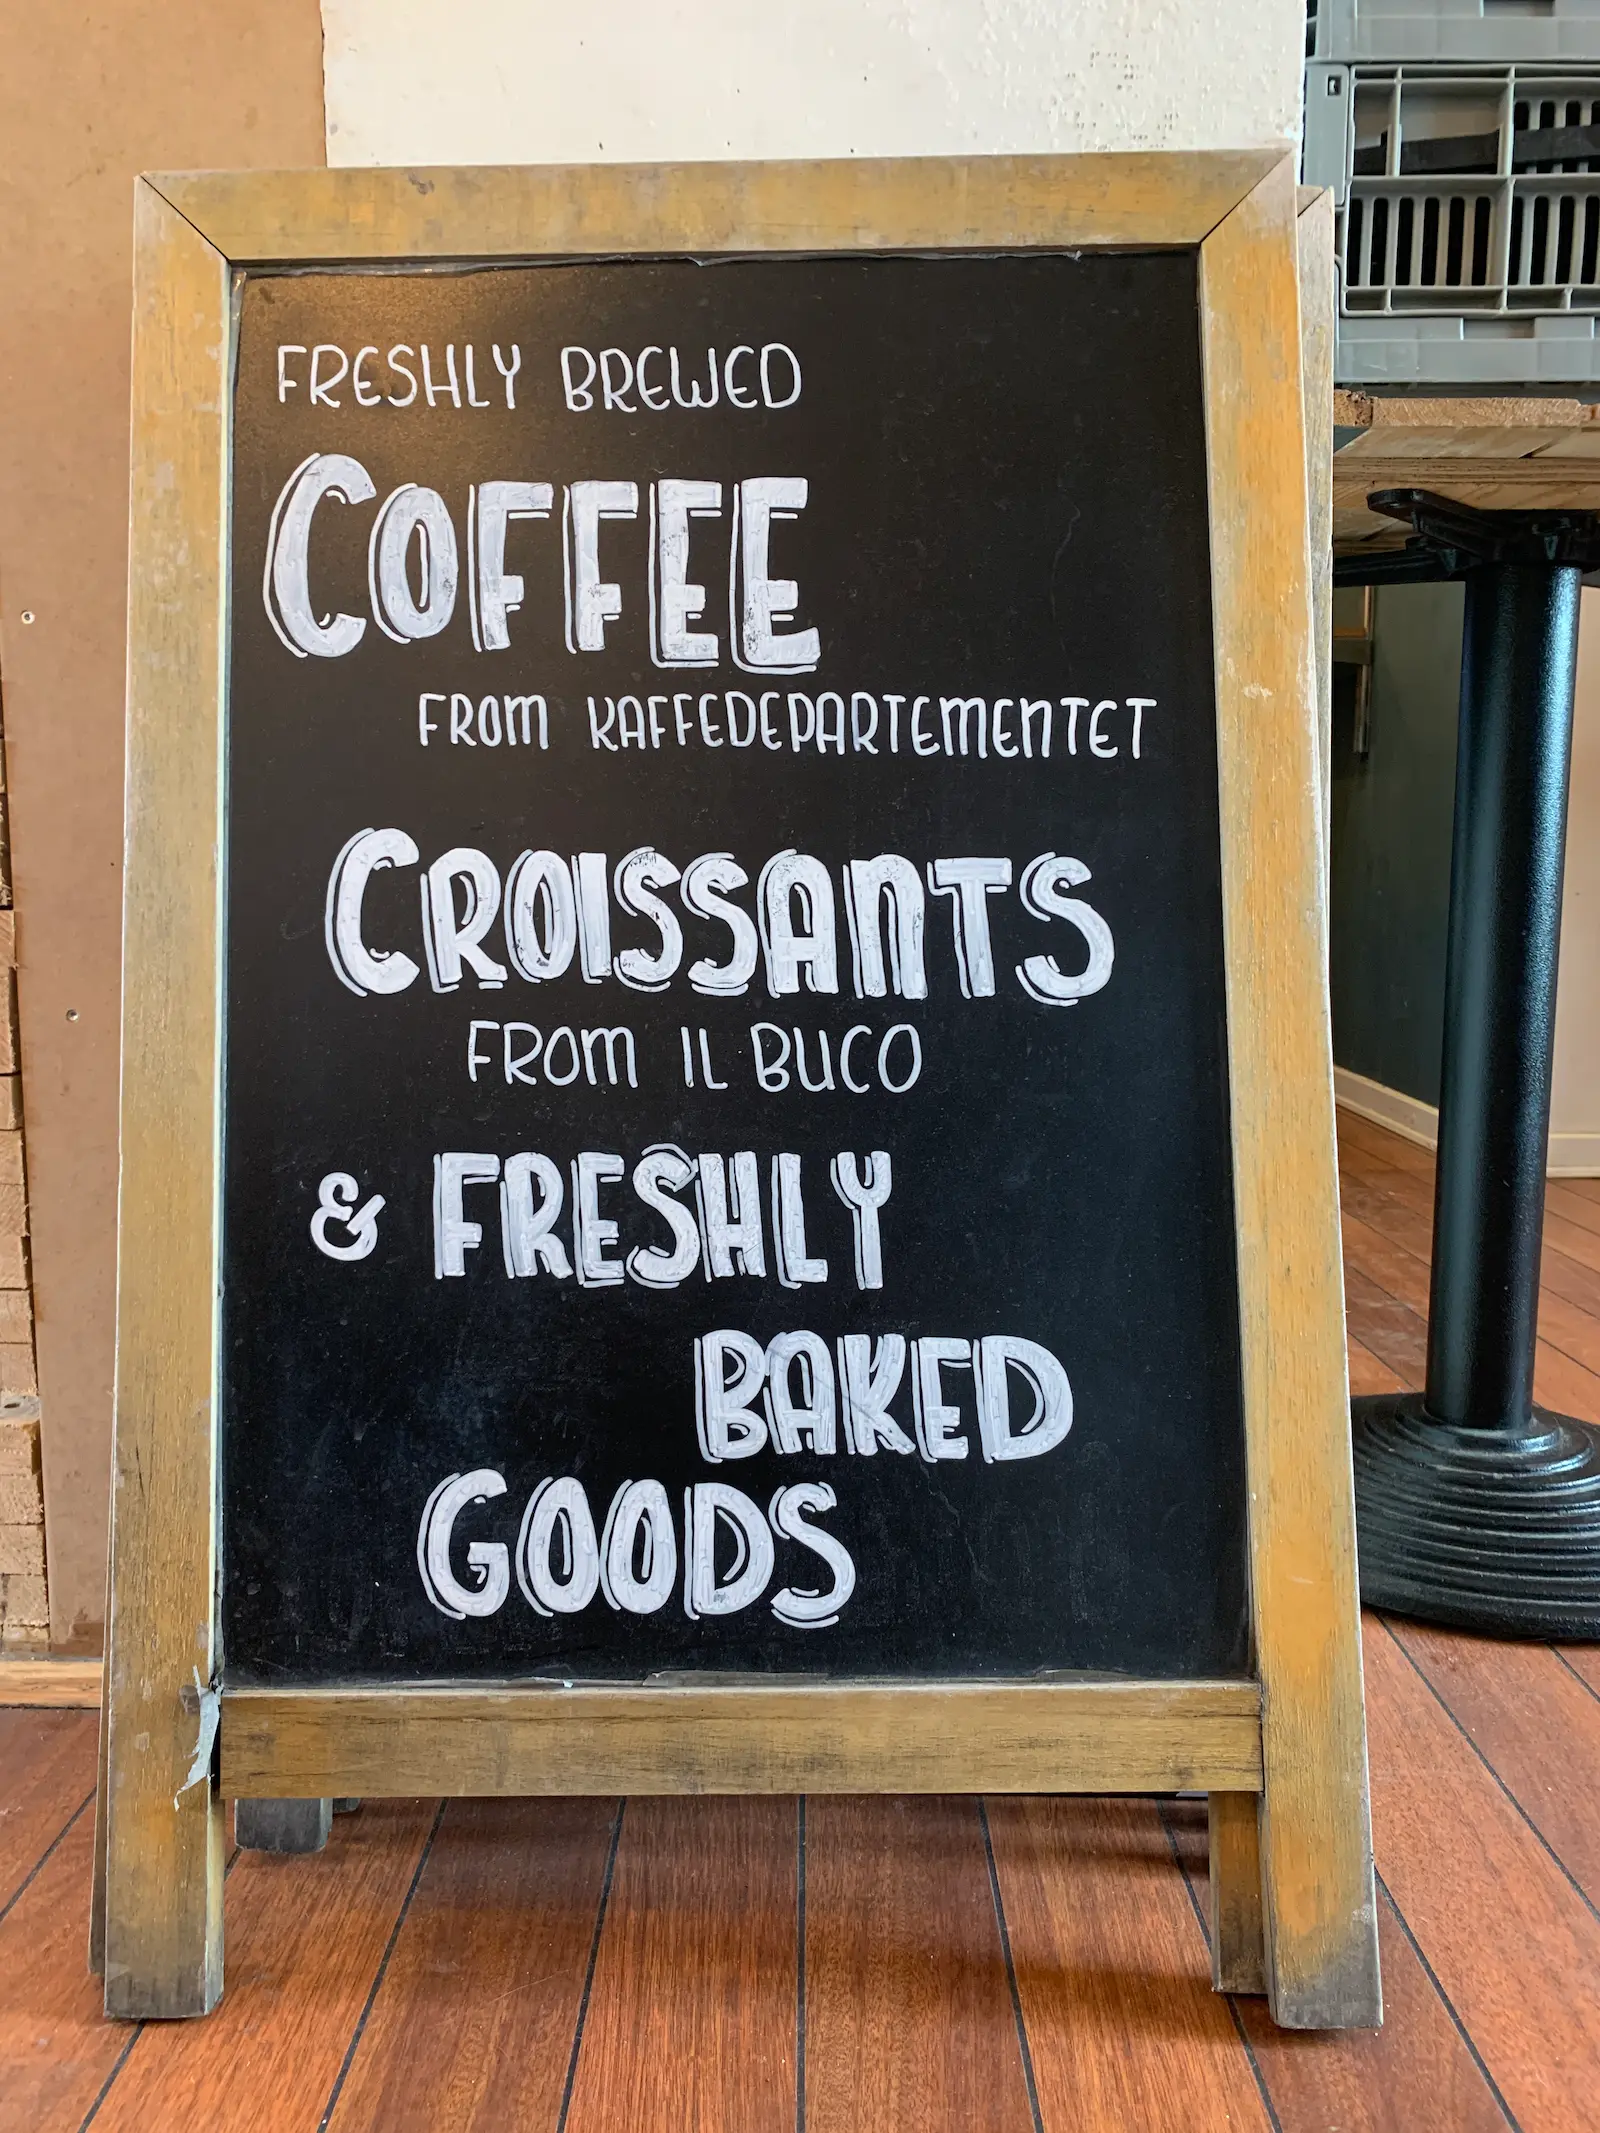 FRESHLY BREWED
COFFEE
FROM KAFFEDEPARTEMENTET
CROISSANTS
FROM IL BUCO
& FRESHLY
BAKED
GOODS